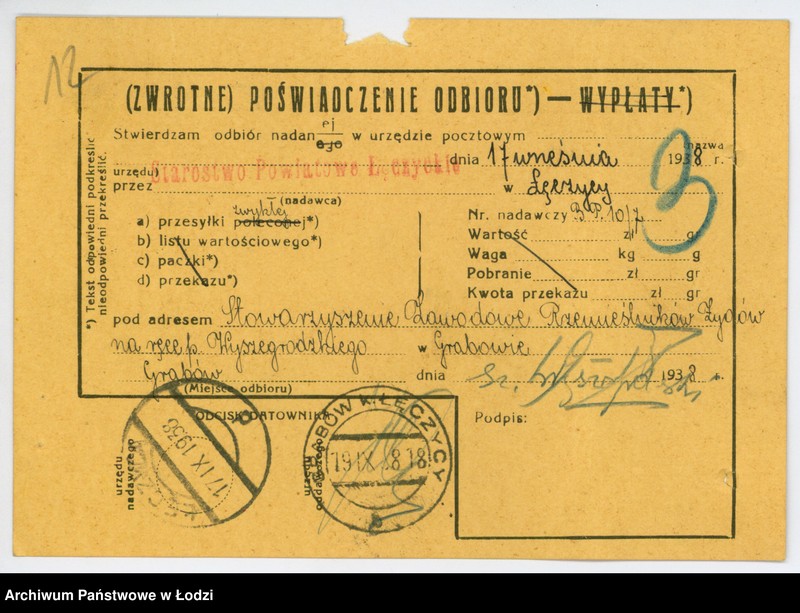 12
(ZWROTNE) POŚWIADCZENIE ODBIORU*) — WYPŁATY*)
Stwierdzam odbiór nadanego ej w urzędzie pocztowym
nazwa
urzędu dnia 17 września 1938 r.
Starostwo Powiatowe Łęczyckie
przez w Łęczycy
(nadawca)
3
a) przesyłki poleconej*) zwykłej
b) listu wartościowego*)
c) paczki*)
d) przekazu*)
Nr. nadawczy B.P. 10/7
Wartość zł gr
Waga kg g
Pobranie zł gr
Kwota przekazu zł gr
*) Tekst odpowiedni podkreślić
nieodpowiedni przekreślić.
pod adresem Stowarzyszenie Zawodowe Rzemieślników Żydów
na ręce p. Wyszegrodzkiego w Grabowie
Grabów dnia 1938 r.
(Miejsce odbioru)
ODCISK DATOWNIKA
Podpis:
urzędu
nadawczego
17 IX 1938
oddawczego
GRABÓW K. ŁĘCZYCY
19 IX 38 18
a
Archiwum Państwowe w Łodzi